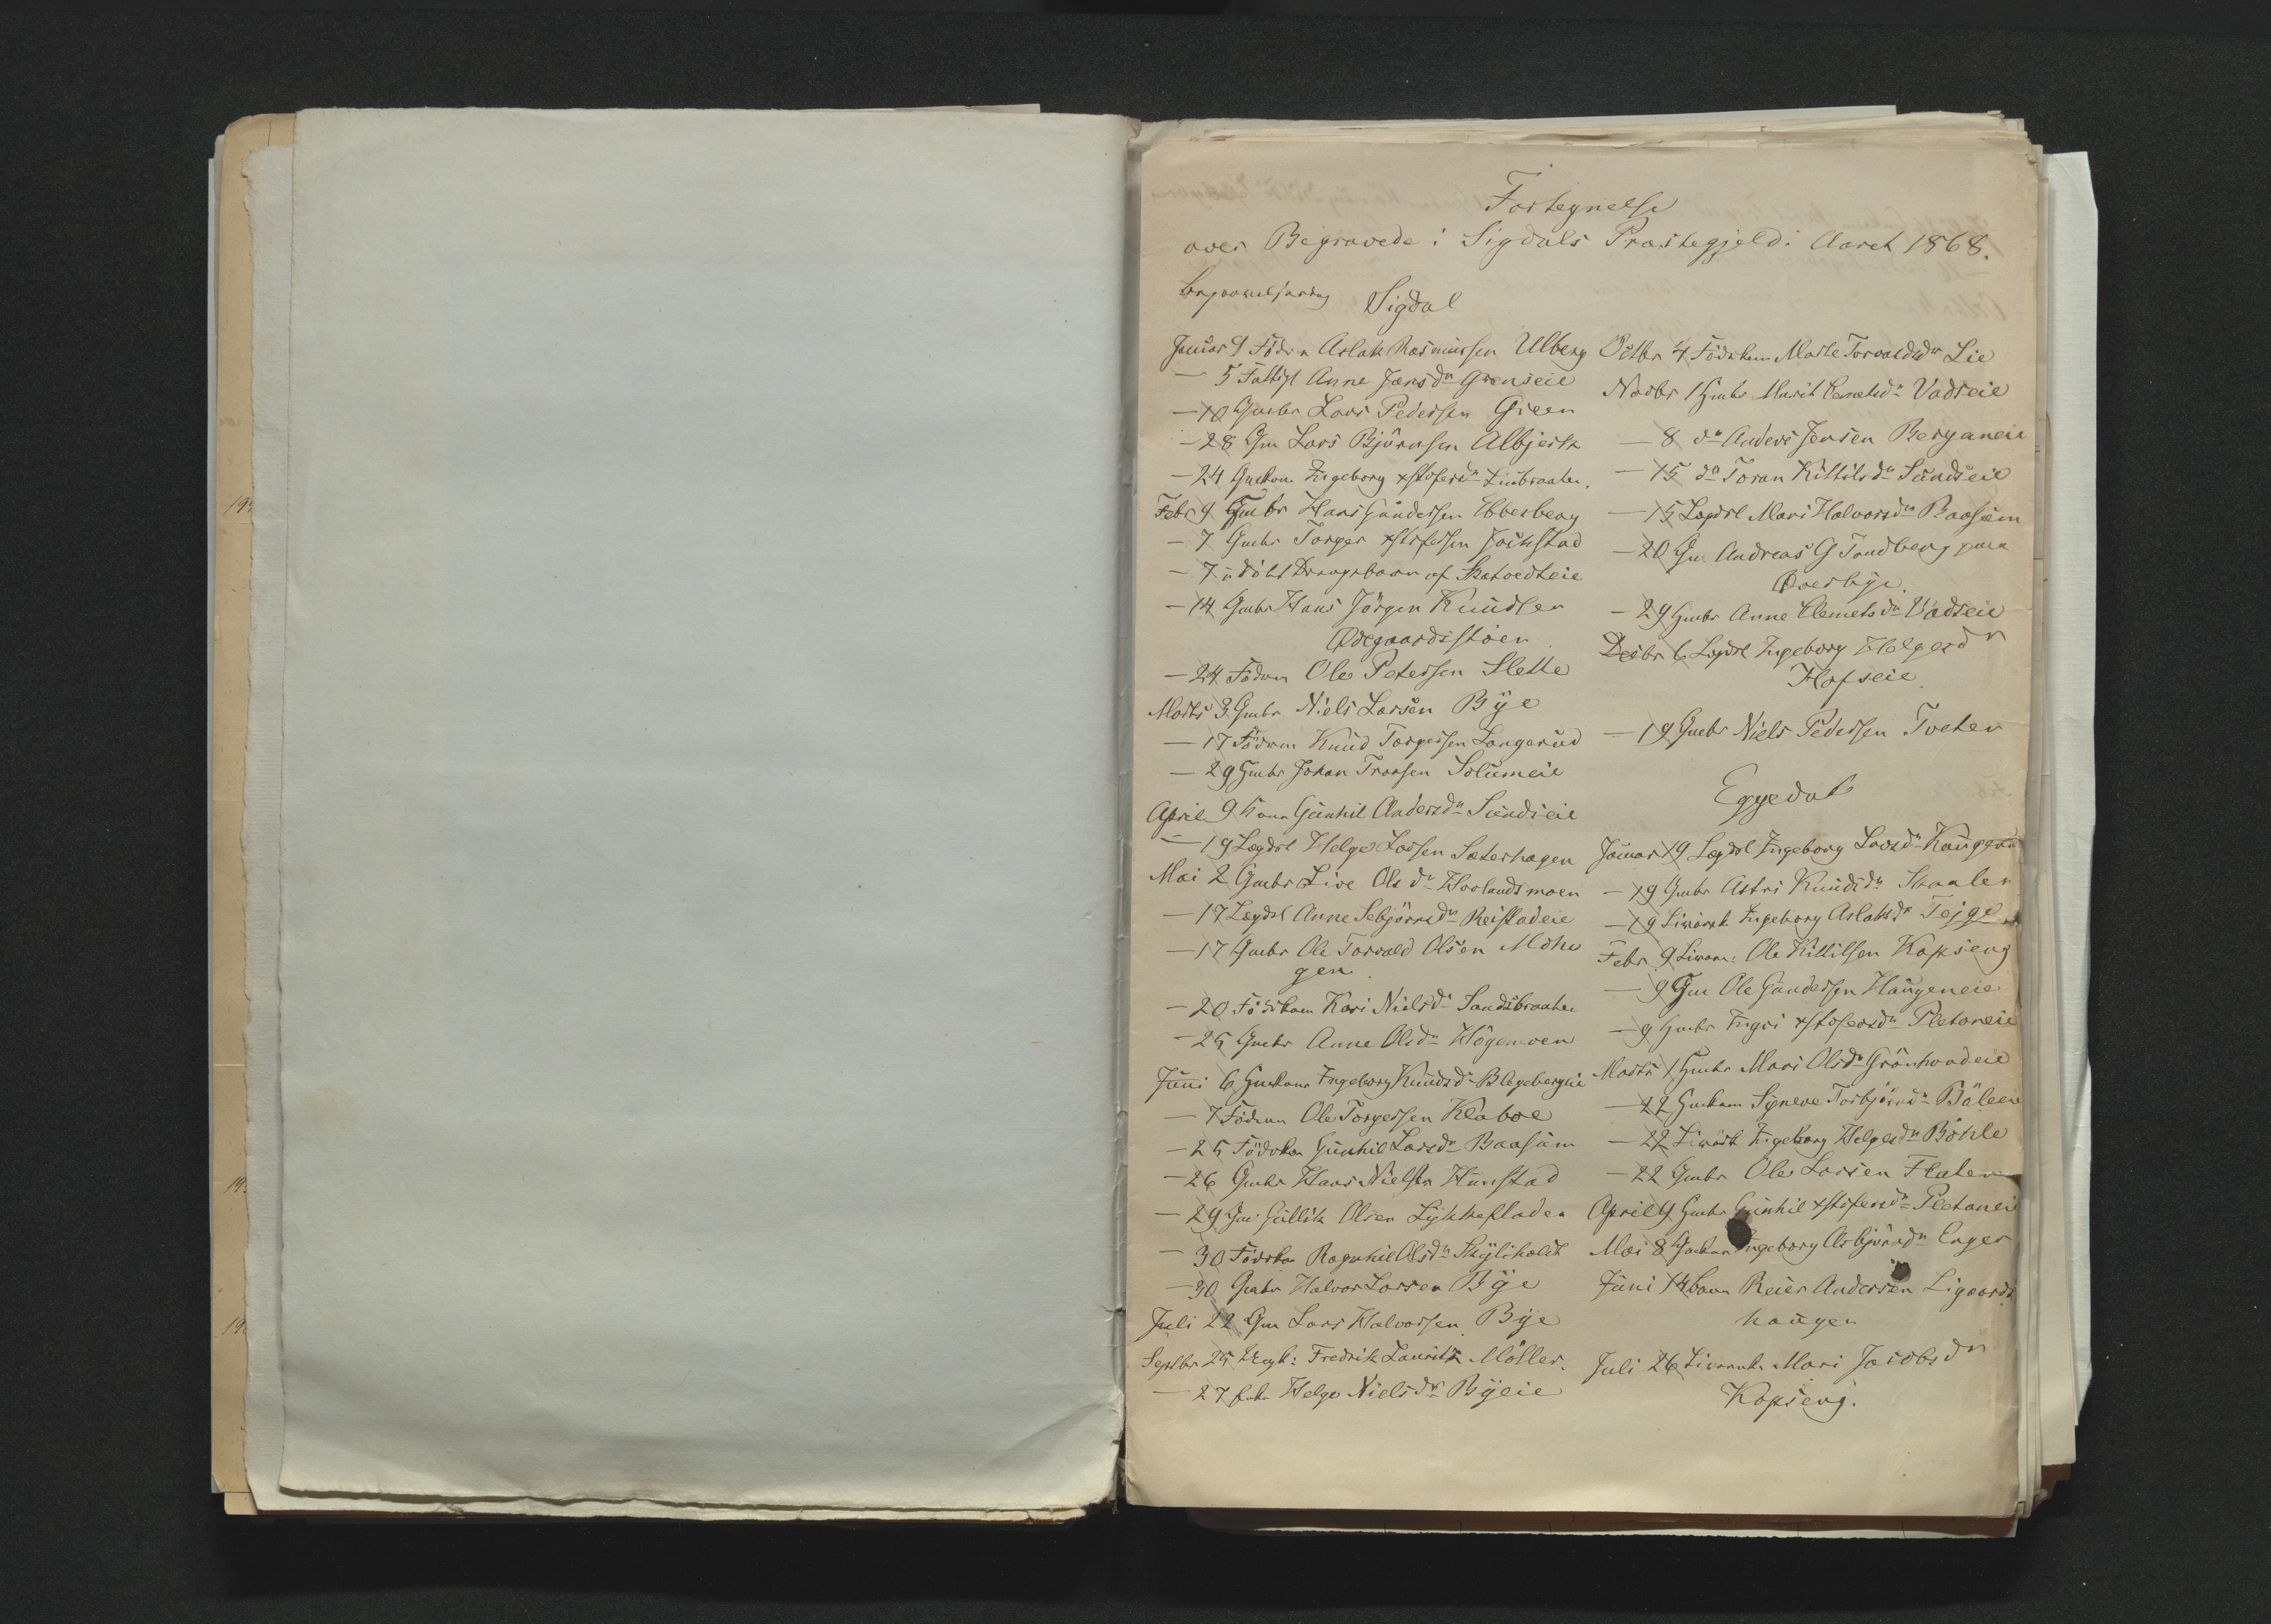 Fortegnelse
over Begravede i Sigdals Præstegjeld i Aaret 1868.
Sigdal
Januar 9 Födr Aslak Rasmussen Ulberg
— 5 Fattigl Anne Jansdr Grenseie
— 10 Gmbr Lars Pedersen Green
— 28 Gm Lars Björnsen Albjerk
— 24 Ingeborg xstofersdr
Febr 9 Gmbr Hans Gundersen Ebbesberg
— 7 Gmbr Torger xstofersen Jokstad
— 7 udöbt Drengebarn af
— 14 Gmbr Hans Jörgen Knudsen
Ødegaardsstøen
— 24 Födrm Ole Petersen Slette
Marts 3 Gmbr Niels Larsen Bÿe
— 17 Födrm Knud Torgersen Langerud
— 29 Gmbr Johan Tronsen Solumeie
April 9 Gunhil Andersdr Sundseie
— 19 Lægdsl Helge Larsen Sæterhagen
Mai 2 Gmbr Live Olsdr Hovlandsmoen
— 17 Lægdsl Anne Sebjörnsdr Reistadeie
— 17 Gmbr Ole Torvald Olsen Mohu
gen
— 20 Födrkone Kari Nielsdr Sandsbraaten
— 25 Gmbr Anne Olsdr Högemoen
Juni 6 Gmkone Ingeborg Knudsdr
— 7 Födrm Ole Torgersen Kleboe
— 25 Födrkone Gunhil Larsdr Baasum
— 26 Gmbr Hans Nielsen Hunstad
— 29 Gm Gullik Olsen Lykkefladen
— 30 Födrkone Ragnhil Olsdr
— 30 Gmbr Halvor Larsen Bÿe
Juli 22 Gm Lars Halvorsen Bÿe
Septbr 25 Fredrik Lauritz Möller.
— 27 Helge Nielsdr Bÿeie
Octbr 4 Födrkone Marte Torvaldsdr Lie
Novbr 1 Gmbr Marit Vadseie
— 8 do Anders Jensen Berganeie
— 15 do Toran Kittilsdr Sundseie
— 15 Lægdsl Mari Halvorsdr Baasum
— 20 Gm Andreas G Tandberg paa
Øverbÿe
— 29 Gmbr Anne Clemetsdr Vadseie
Decbr 6 Lægdsl Ingeborg Helgesdr
Hofseie
— 19 Gmbr Niels Pedersen Tveten
Eggedal
Januar 19 Lægdsl Ingeborg Larsdr
— 19 Gmbr Astri Knudsdr Skaalen
— 19 Ingeborg Aslaksdr
Febr 9 Ole Kittilsen Kopseng
— 9 Gm Ole Gundersen Haugeneie
— 9 Gmbr Ingri xstofersdr Pletaneie
Marts 1 Gmbr Mari Olsdr Grönhovdeie
— 22 Gmkone Syneve Torbjörnsdr
— 22 Ingeborg Helgesdr Böhle
— 22 Gmbr Ole Larsen Flaten
April 9 Gmbr Gunhil xstofersdr Pletaneie
Mai 8 Ingeborg Asbjörnsdr Enger
Juni 14 Reier Andersen Ligaards
haugen
Juli 26 Mari Jacobsdr
Kopseng.